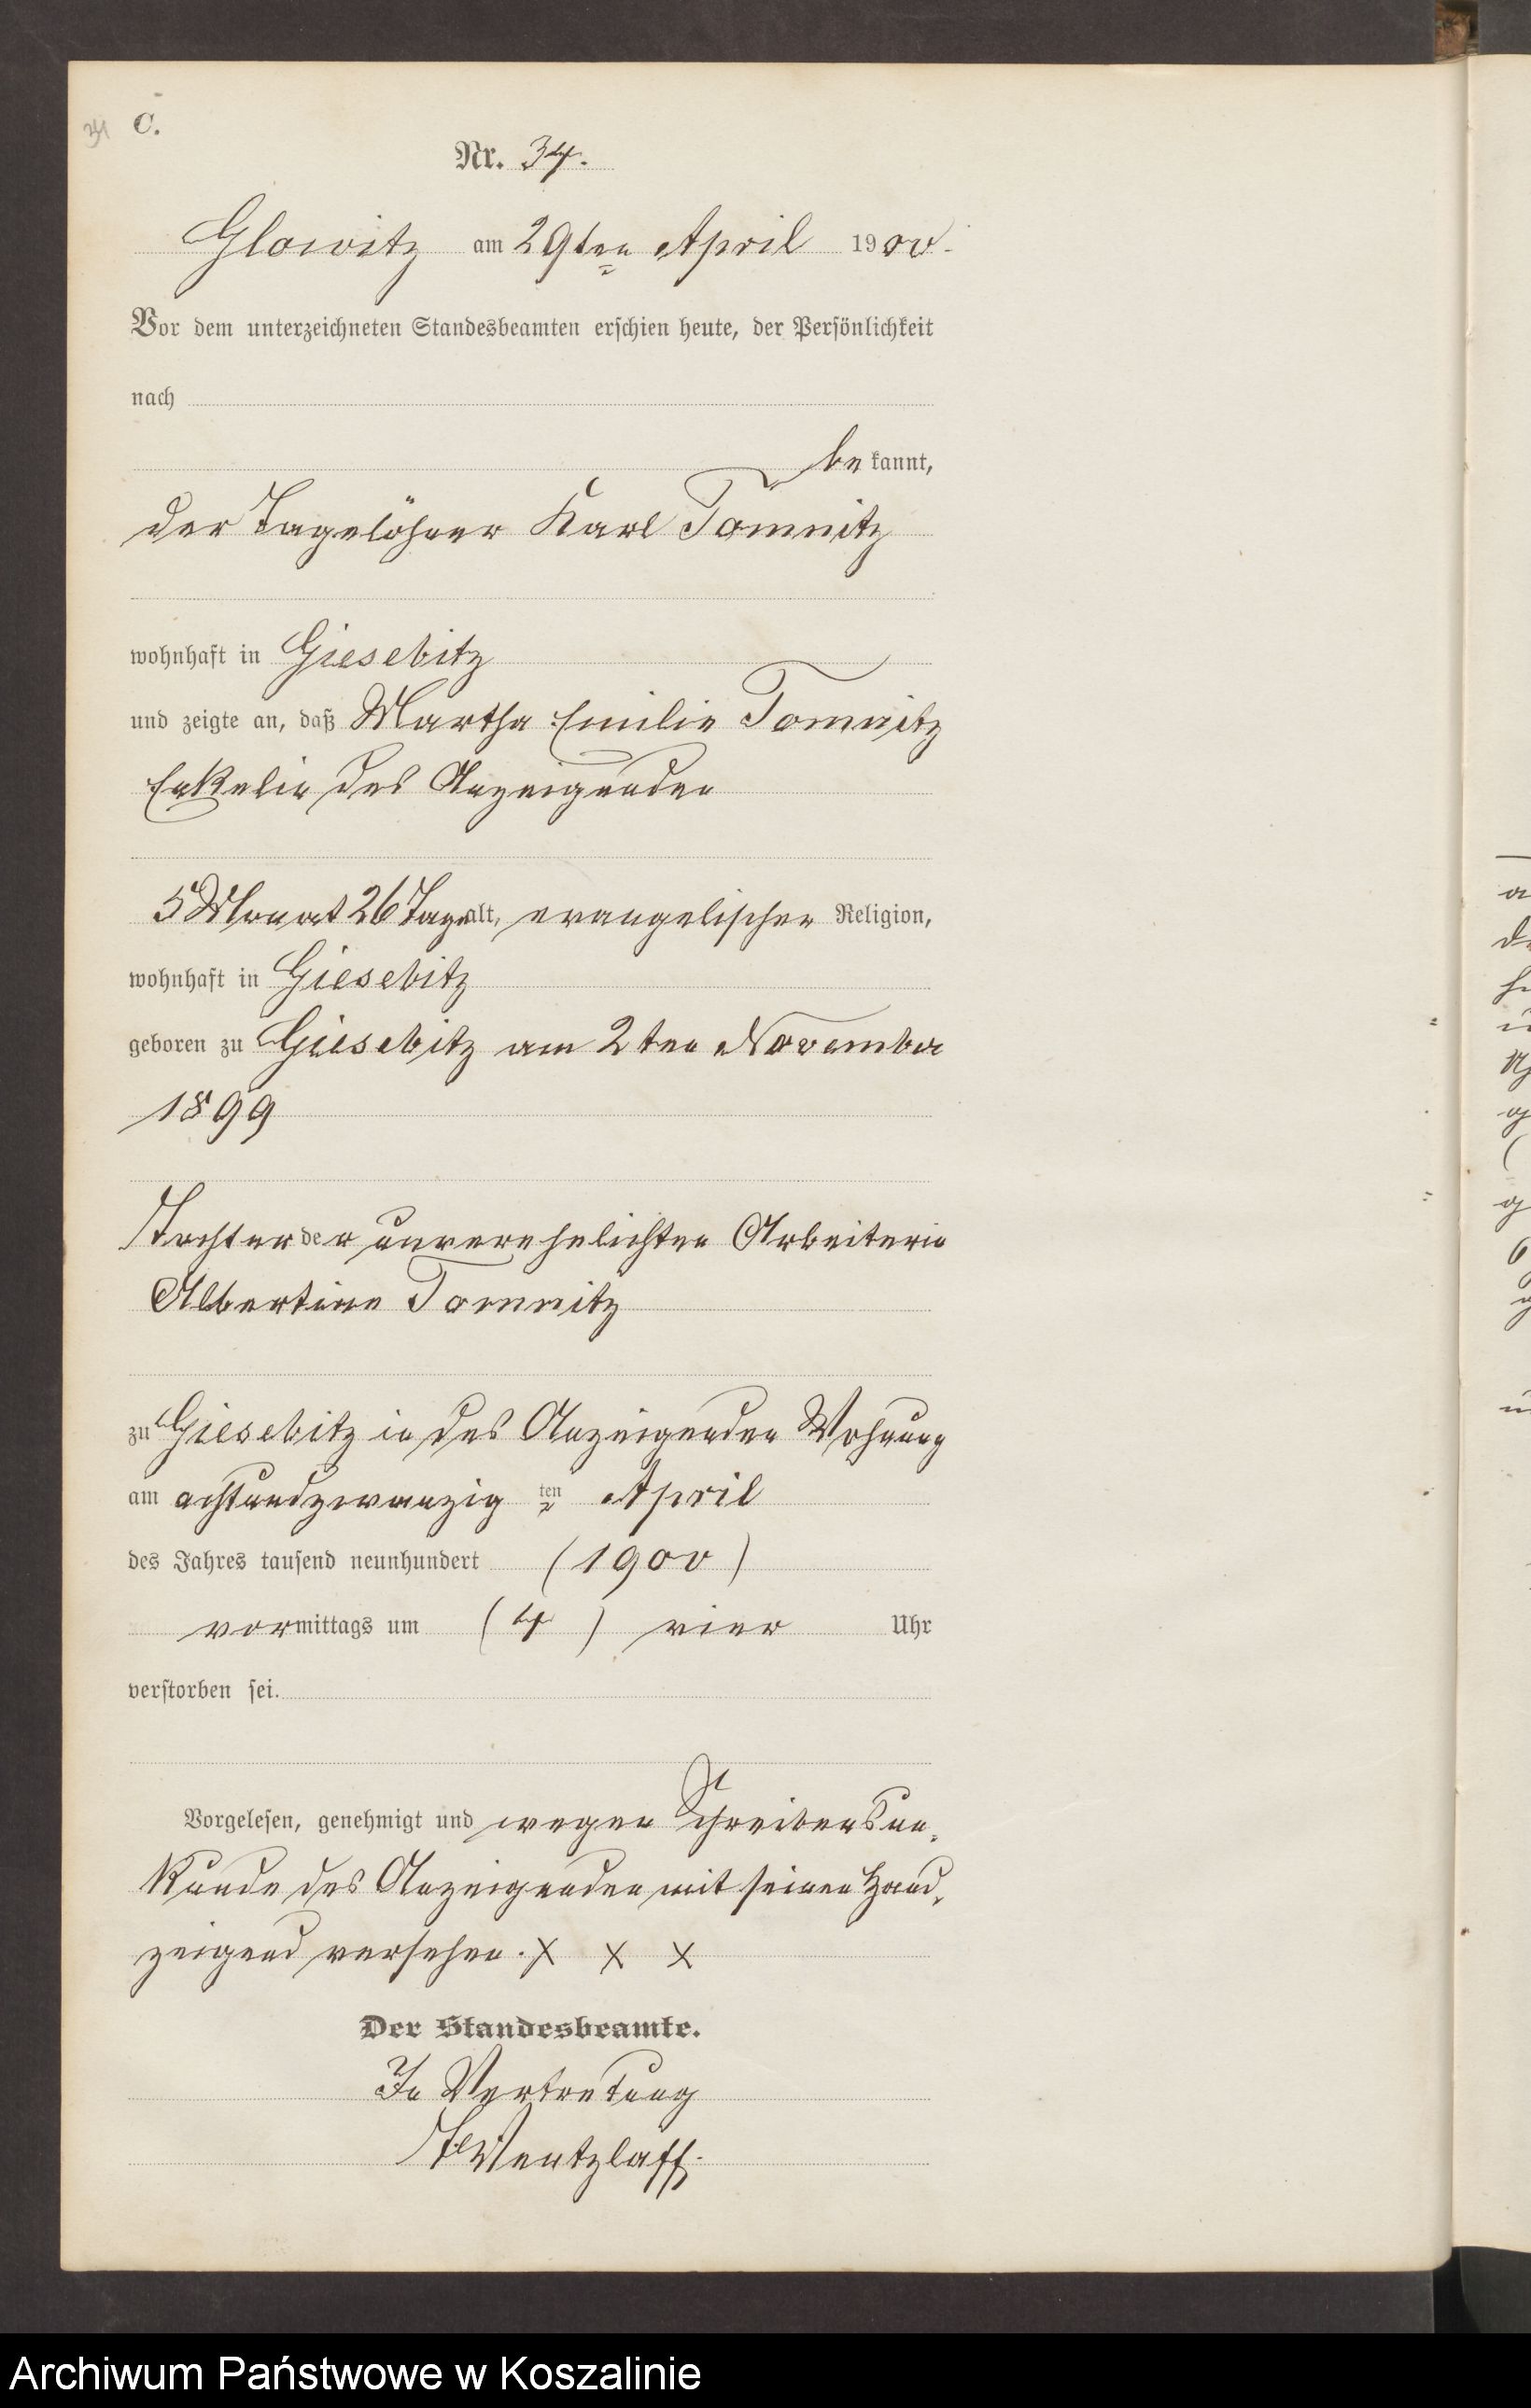 34
C.
Nr. 34.
Glowitz am 29ten April 1900.
Vor dem unterzeichneten Standesbeamten erschien heute, der Persönlichkeit
nach
be kannt,
der Tagelöhner Karl Tomnitz
wohnhaft in Giesebitz
und zeigte an, daß Martha Emilie Tomnitz
Enkelin des Anzeigenden
5 Monat 26 Tage alt, evangelischer Religion,
wohnhaft in Giesebitz
geboren zu Giesebitz am 2ten November
1899
Tochter der unverehelichten Arbeiterin
Albertine Tomnitz
zu Giesebitz in des Anzeigenden Wohnung
am achtundzwanzig ten April
des Jahres tausend neunhundert (1900)
vormittags um (4) vier Uhr
verstorben sei.
Vorgelesen, genehmigt und wegen Schreibensun-
kunde des Anzeigenden mit seinen Hand-
zeigend versehen. X X X
Der Standesbeamte.
In Vertretung
Wentzlaff.
Archiwum Państwowe w Koszalinie